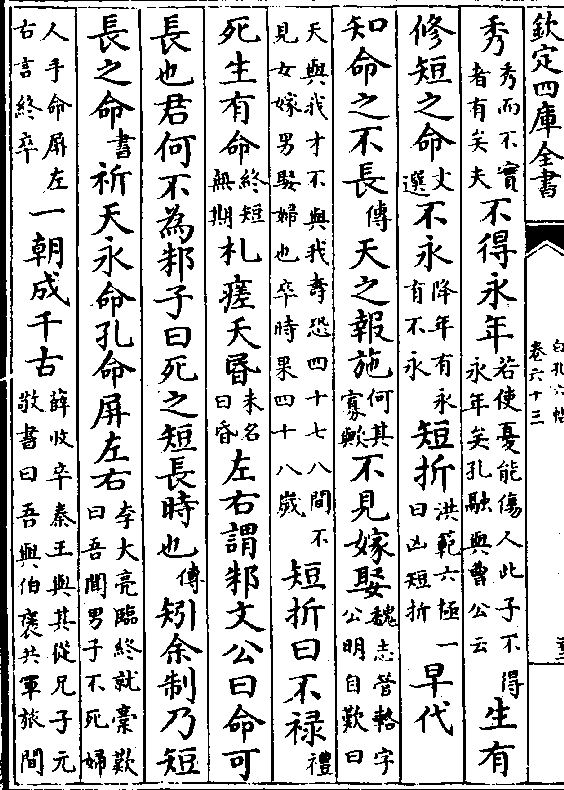 欽定四庫全書
白孔六帖
卷六十三
秀秀而不實者有矣夫不得永年若使憂能傷人此子不得永年矣孔融與曹公云生有
修短之命文選不永降年有永有不永短折洪範六極一曰凶短折早代
知命之不長傳天之報施何其寡歟不見嫁娶魏志管輅字公明自歎曰
天與我才不與我壽恐四十七八間不見女嫁男娶婦也卒時果四十八歲短折曰不禄禮
死生有命終短無期札瘥夭昏未名曰昏左右謂邾文公曰命可
長也君何不為邾子曰死之短長時也傳矧余制乃短
長之命書祈天永命孔命屏左右李大亮臨終就藁歎曰吾聞男子不死婦
人手命屏左右言終卒一朝成千古薛收卒秦王與其從兄子元敬書曰吾與伯褒共軍旅間